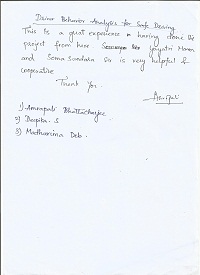 Driver Behavior Analysis for Safe Driving
This is a great experience in having done the
project from here Gayatri Manam
and Soma Sundara Sir is very helpful &
cooperative
Thank You.
1) Amrapali Bhattacharjee
2) Deepika. S
3) Madhurima Deb.